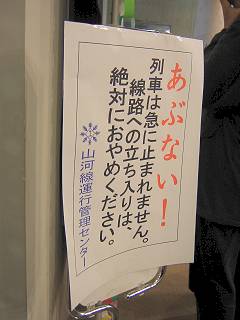 あぶない！
列車は急に止まれません。
線路への立ち入りは、
絶対におやめください。
山河線運行管理センター